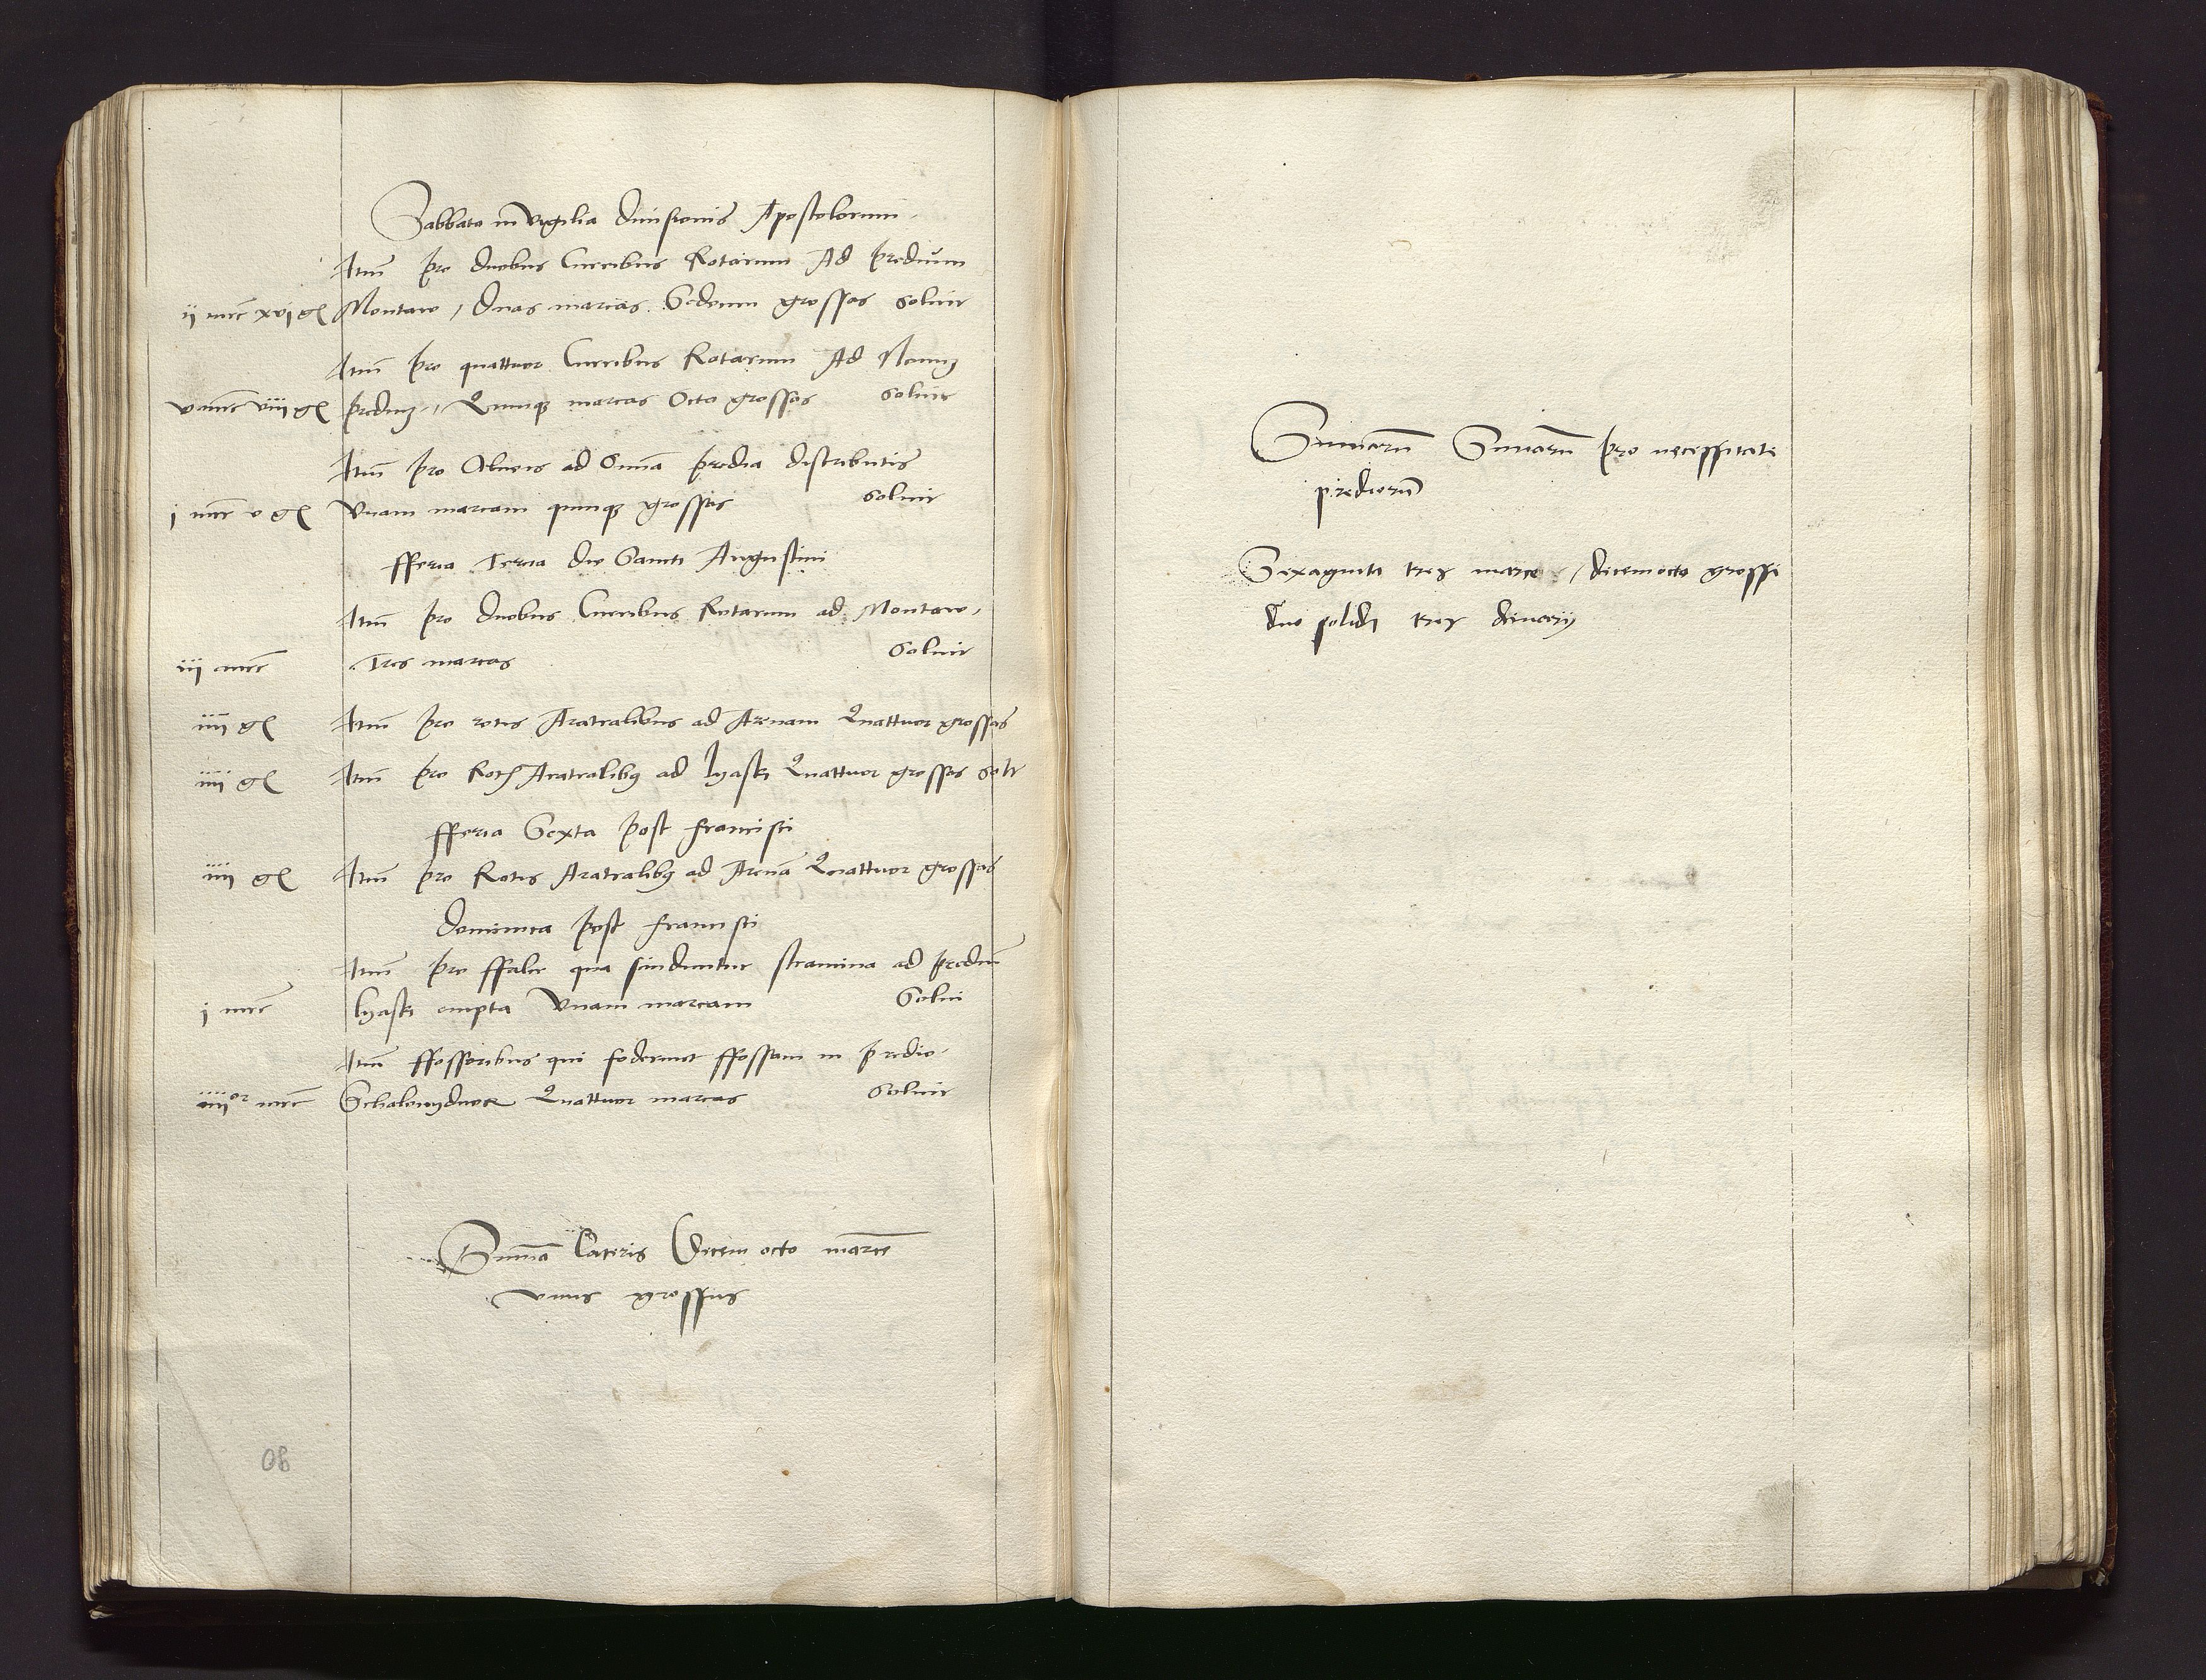 Sabbato in vigilia divisionis Apostolorum
Itm pro duobus Curribus Rotarum Ad predium
ij mrc xvj gl Montaw / duas marcas Sedecim grossos solvit
Itm pro quattuor Curribus Rotarum Ad Novum
v mrc viij gl predium / Quinque marcas Octo grossos solvit
Itm pro Alveis ad omnia predia distributis
j mrc v gl Vnam marcam quinque grossos solvit
fferia Tercia die Sancti Augustini
Itm pro duobus Curribus Rotarum ad Montaw
iij mrc Tres marcas Solvit
iiij gl Itm pro rotis Aratralibus ad Arenam Quattuor grossos
iiij gl Itm pro Rotis Aratralibus ad lyaski Quattuor grossos solt
fferia Sexta post francisci
iiij gl Itm pro Rotis Aratralibus ad Arenā Quattuor grossos
Dominica post francisci
Itm pro ffalce qua scinduntur stramina ad prediū
j mrc lyaski empta Vnam marcam Solvi
Itm ffossoribus qui foderunt ffossam in predio
iiijor mrc Quattuor marcas Solvit
Summa lateris Decem octo marce
vnus grossus
90
Summarū Summarū pro necessitate
prediorū
Sexaginta tres marce / decem octo grossi
duo solidi tres denarij